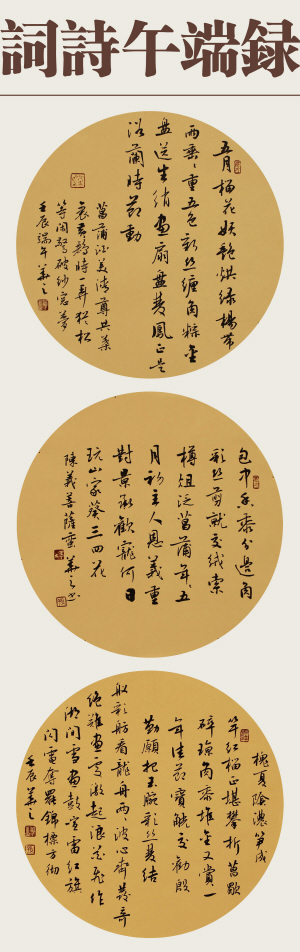 録端午詩詞
五月榴花妖艷烘緑楊帶
雨垂垂重五色新絲纏角粽金
盤送生綃畫扇盤雙鳳正是
浴蘭時節動
菖蒲酒美清尊共葉
裏黄鸝時一弄猶松
等閑驚破紗窗夢
壬辰端午華之
包中香黍分邊角
彩絲剪就交絨索
樽俎泛菖蒲年年五
月初主人恩義重
對景承歡寵何日
玩山家葵三四花
陳義菩薩蠻華之書
槐夏陰濃筍成
竿紅榴正堪攀折菖歜
碎瓊角黍堆金又賞一
年佳節寶觥交勸殷
勤願把玉腕彩絲雙結
馭彩舫看龍舟兩兩波心齊發奇
絶難畫處激起浪花飛作
湖間雪畫鼓宣雷紅旗
閃電奪罷錦標方徹
壬辰華之